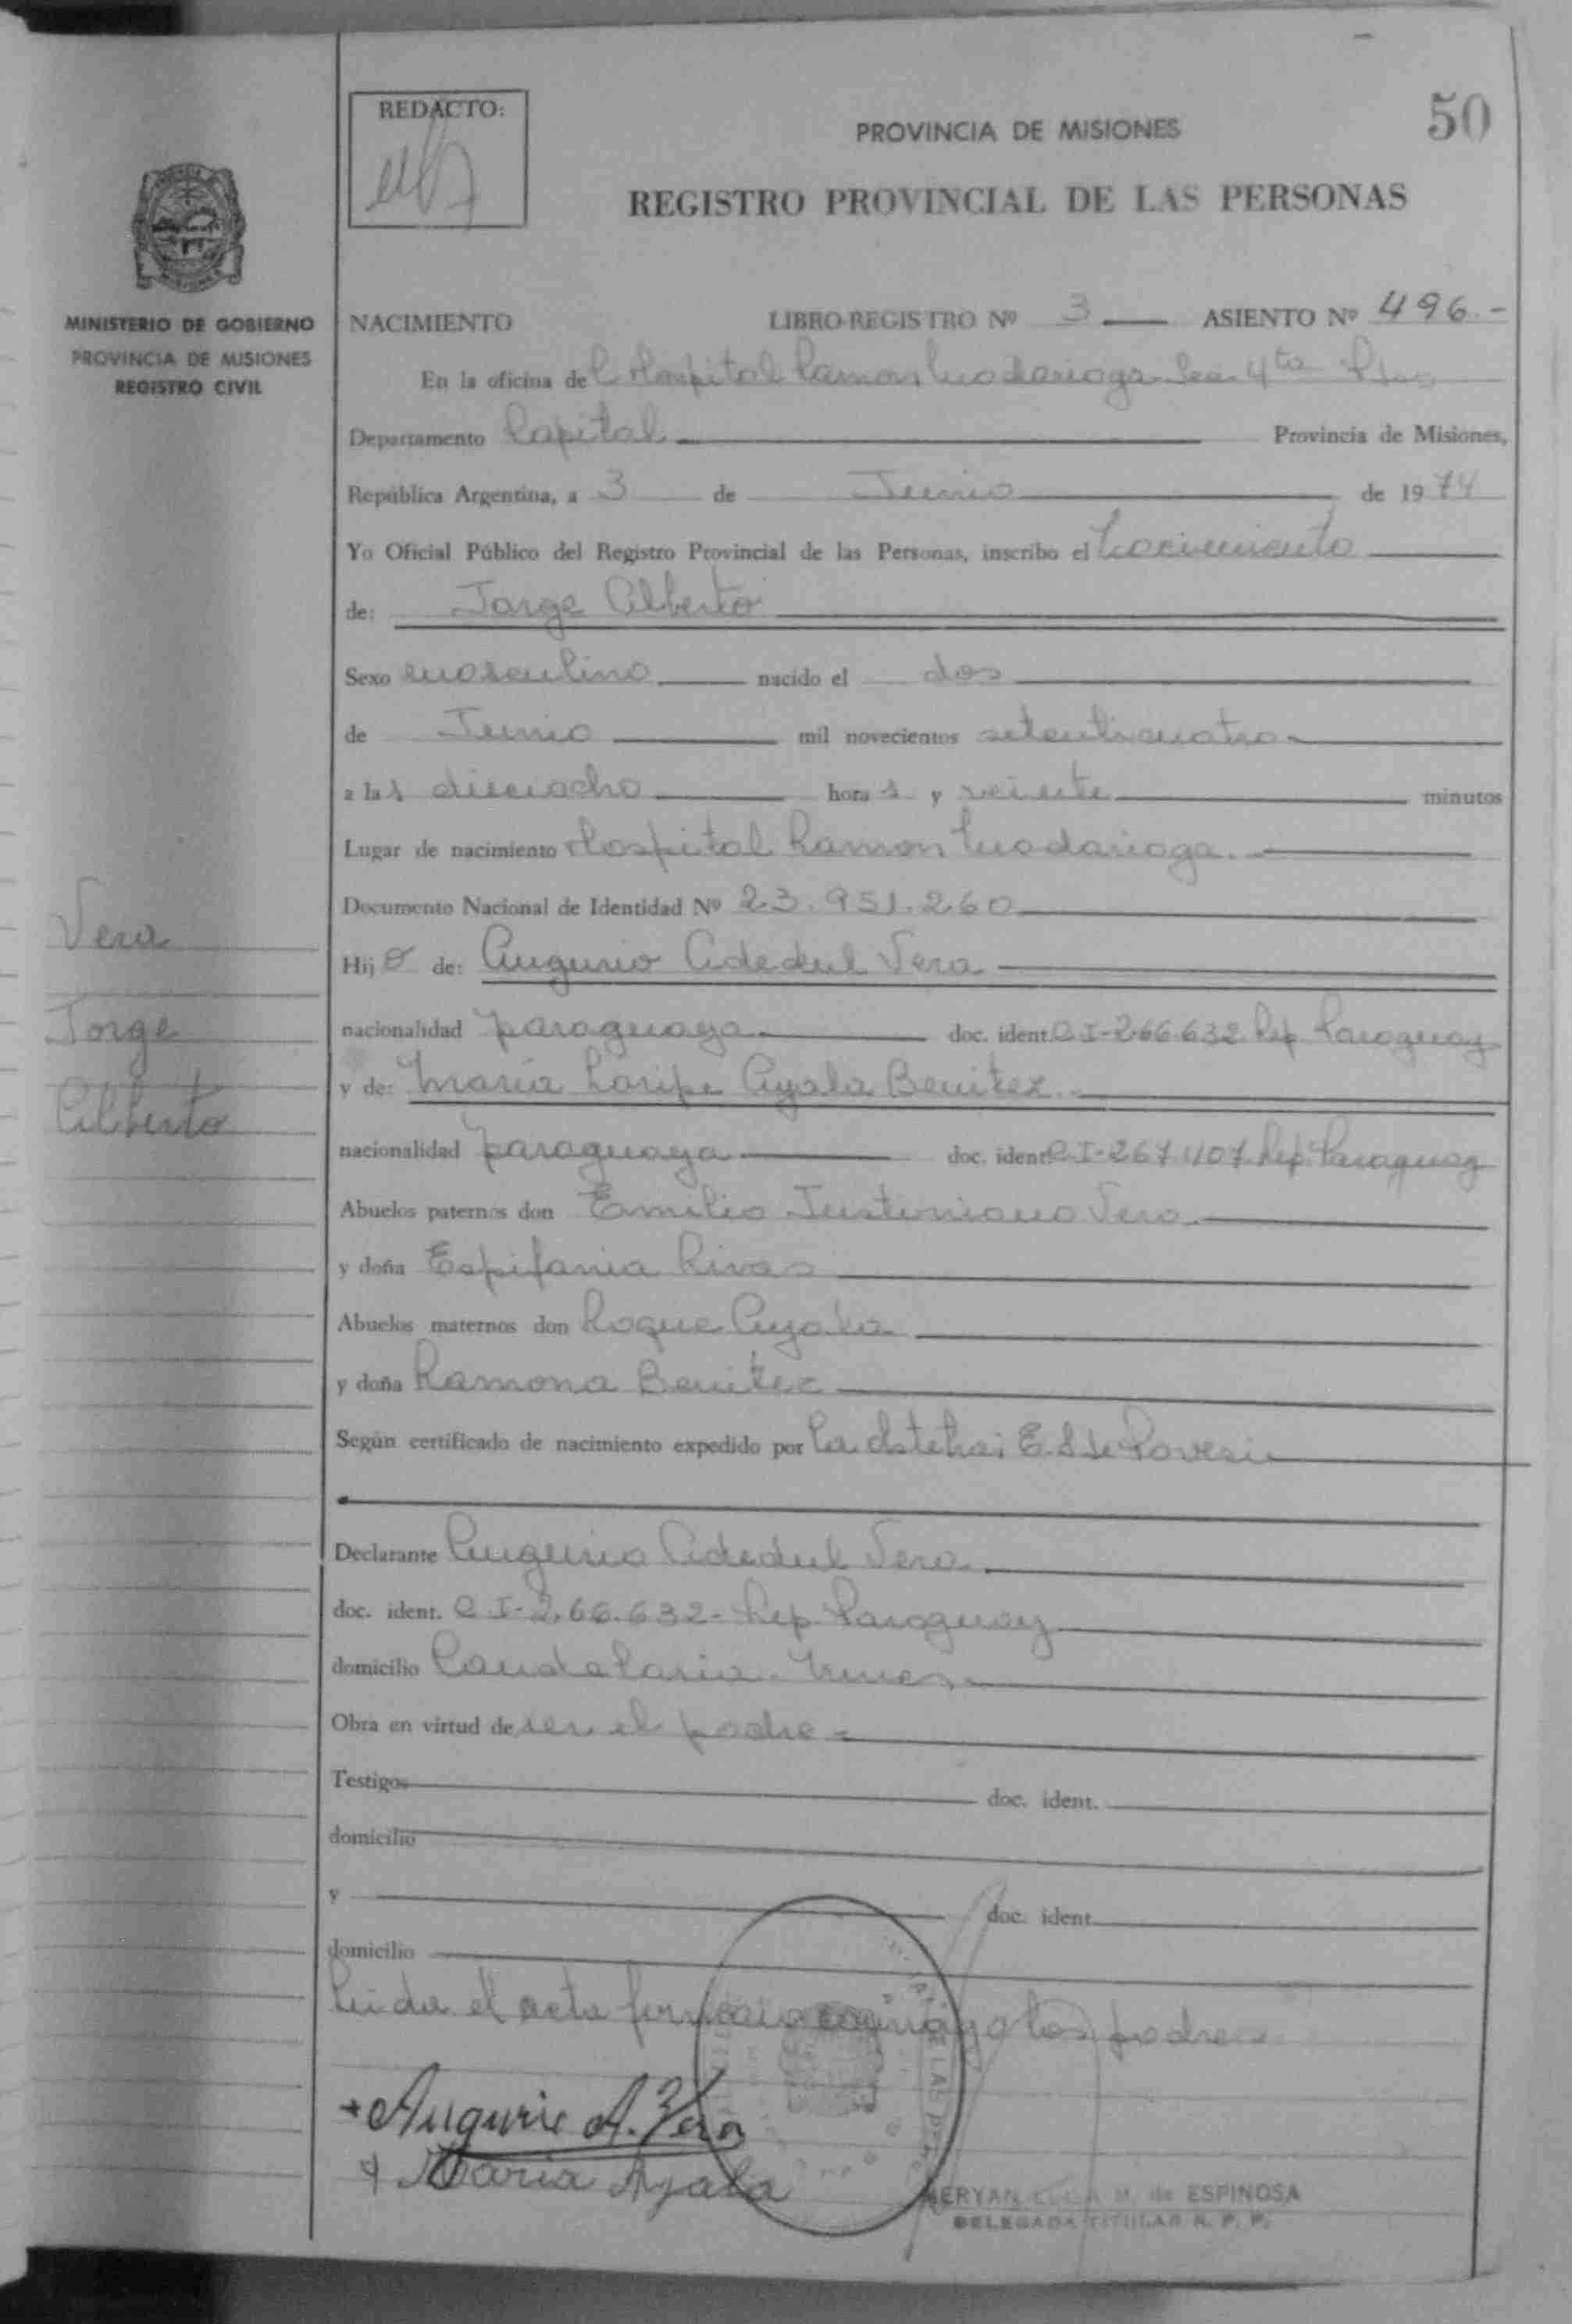 50
REDACTO:
PROVINCIA DE MISIONES
REGISTRO PROVINCIAL DE LAS PERSONAS
MINISTERIO DE GOBIERNO
PROVINCIA DE MISIONES
REGISTRO CIVIL
NACIMIENTO LIBRO-REGISTRO Nº 3 ASIENTO Nº 496.-
En la oficina del Hospital Ramon Madariaga Sec. 4ta Pdas
Departamento Capital Provincia de Misiones,
República Argentina, a 3 de Junio de 1974
Yo Oficial Público del Registro Provincial de las Personas, inscribo el Nacimiento
de: Jorge Alberto
Sexo masculino nacido el dos
de Junio mil novecientos setenticuatro
a las dieciocho horas y veinte minutos
Lugar de nacimiento Hospital Ramon Madariaga.
Documento Nacional de Identidad Nº 23.951.260
Vera
Jorge
Alberto
Hijo de: Augurio Adedul Vera
nacionalidad paraguaya doc. ident. C I-266.632 Rep Paraguay
y de: Maria Ayala Benitez
nacionalidad paraguaya doc. ident. C I-267.407 Rep Paraguay
Abuelos paternos don Emilio Justiniano Vera
y doña Espifania Rivas
Abuelos maternos don Roque Ayala
y doña Ramona Benitez
Según certificado de nacimiento expedido por la
Declarante Augurio Adedul Vera
doc. ident. C I-266.632- Rep Paraguay
domicilio Candelaria. Mnes.
Obra en virtud de ser el padre
Testigos doc. ident.
domicilio
y doc. ident.
domicilio
Leida el acta firman conmigo los padres
Augurio A. Vera
Maria Ayala
M. de ESPINOSA
DELEGADA TITULAR R. P. P.